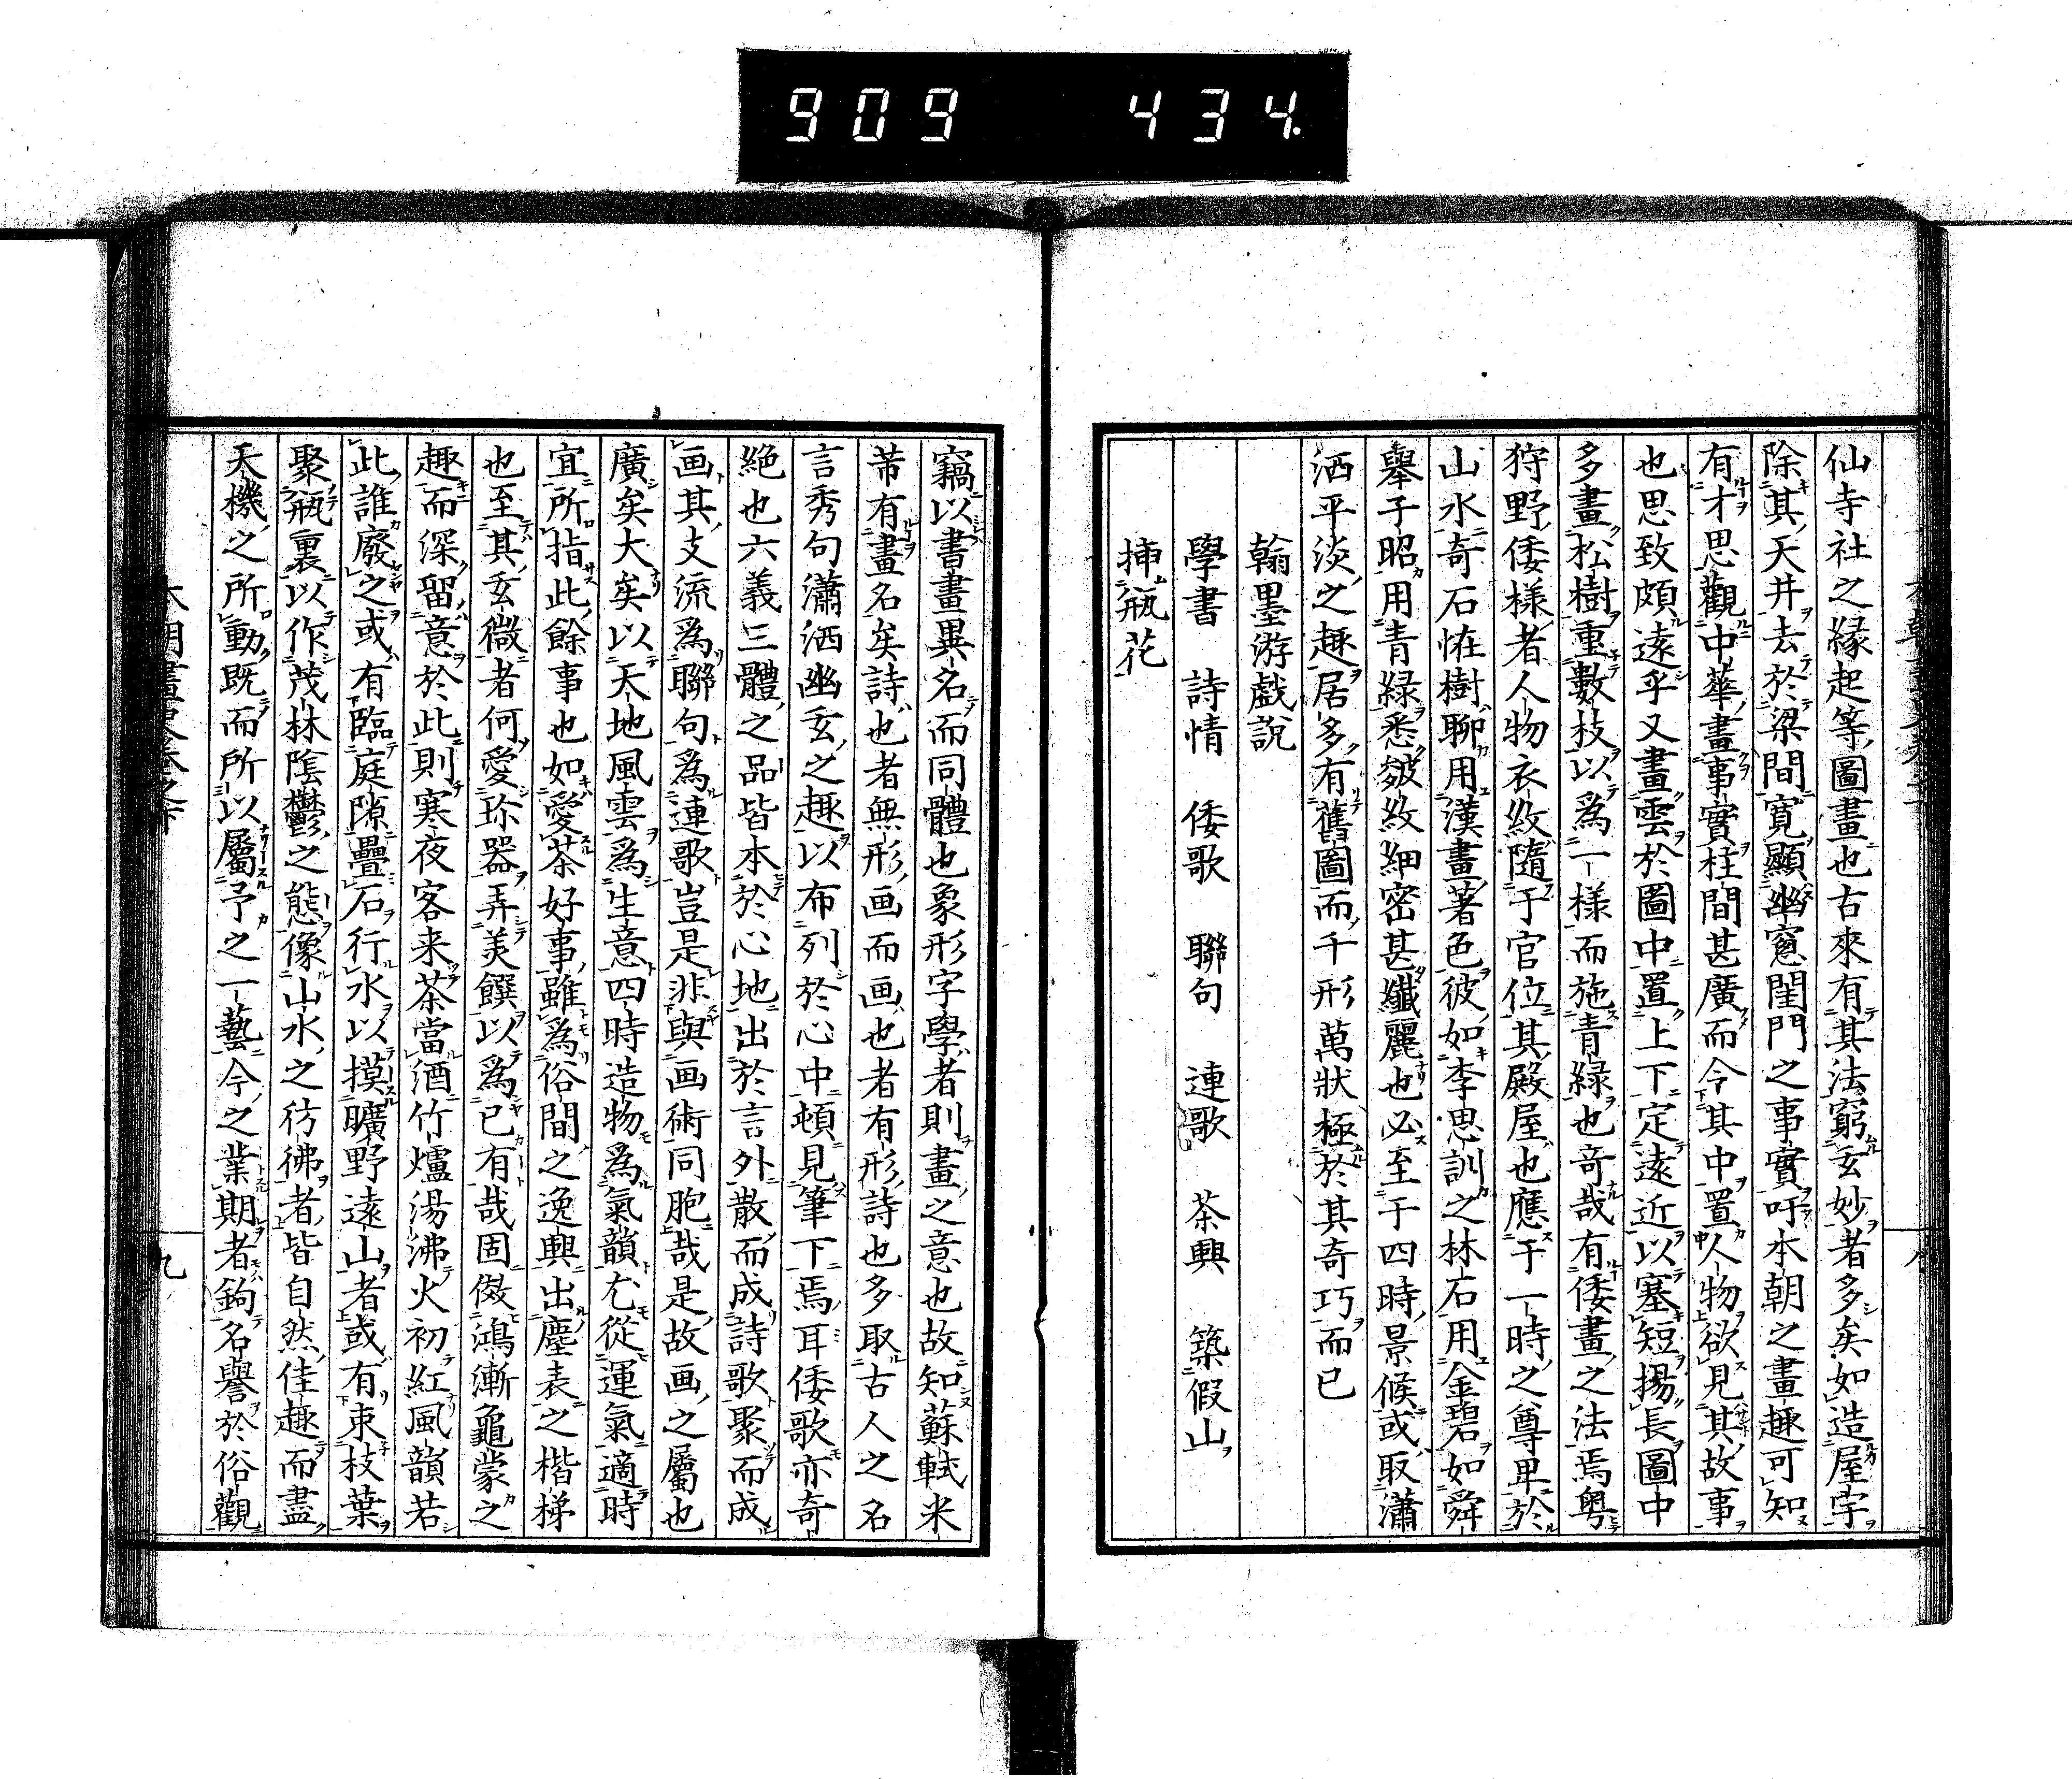 909 434.
仙寺社之縁起等圖畫也古來有其法窮玄妙者多矣如造屋宇
除其天井去於梁間寛顯幽窻閨門之事實吁本朝之畫趣可知
有才思觀中華畫事實柱間甚廣而今其中置人物欲見其故事
也思致頗遠乎又畫雲於圖中置上下定遠近以塞短揚長圖中
多畫松樹重數枝以爲一様而施青緑也竒哉有倭畫之法焉粤
狩野倭様者人物衣紋隨于官位其殿屋也應于一時之尊卑於
山水奇石恠樹聊用漢畫著色彼如李思訓之林石用金碧如舜
擧子昭用青緑悉皴紋細密甚纎麗也必至于四時景候或取瀟
洒平淡之趣居多有舊圖而千形萬狀極於其奇巧而已
翰墨游戯説
學書 詩情 倭歌 聯句 連歌 茶興 築假山
挿瓶花
竊以書畫異名而同體也象形字學者則畫之意也故知蘇軾米
芾有畫名矣詩也者無形画而画也者有形詩也多取古人之名
言秀句瀟洒幽玄之趣以布列於心中頓見筆下焉耳倭歌亦奇
絶也六義三體之品皆本於心地出於言外散而成詩歌聚而成
画其支流爲聯句爲連歌豈是非與画術同胞哉是故画之屬也
廣矣大矣以天地風雲爲生意四時造物爲氣韻尤從運氣適時
宜所指此餘事也如愛茶好事雖爲俗間之逸興出塵表之楷梯
也至其玄微者何愛珎器弄美饌以爲已有哉固傚鴻漸龜蒙之
趣而深留意於此則寒夜客来茶當酒竹爐湯沸火初紅風韻若
此誰廢之或有臨庭隙疊石行水以摸曠野遠山者或有束枝葉
聚瓶裏以作茂林陰鬱之態像山水之彷彿者皆自然佳趣而盡
天機之所動既而所以屬予之一藝今之業期者鉤名譽於俗觀
本朝畫史卷之下
九